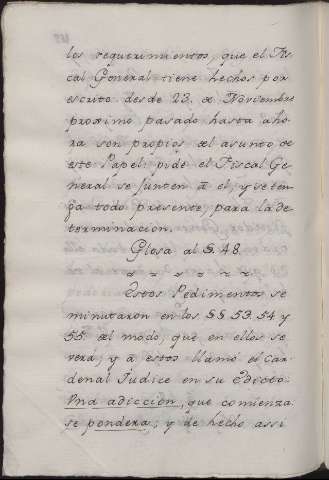 los requerimientos, que el Fis-
cal General tiene hechos por
escrito desde 23. de Noviembre
proximo pasado hasta aho-
ra son propios del asunto de
este Papel: pide el Fiscal Ge-
neral se junten â el, y se ten-
ga todo presente, para la de-
terminacion.
Glosa al §. 48.
Estos Pedimentos se
minutaron en los §§ 53. 54 y
55. del modo, que en ellos se
vera; y a estos llamó el Car-
denal Iudice en su Edicto:
Una adiccion, que comienza:
se pondera; y de hecho assi